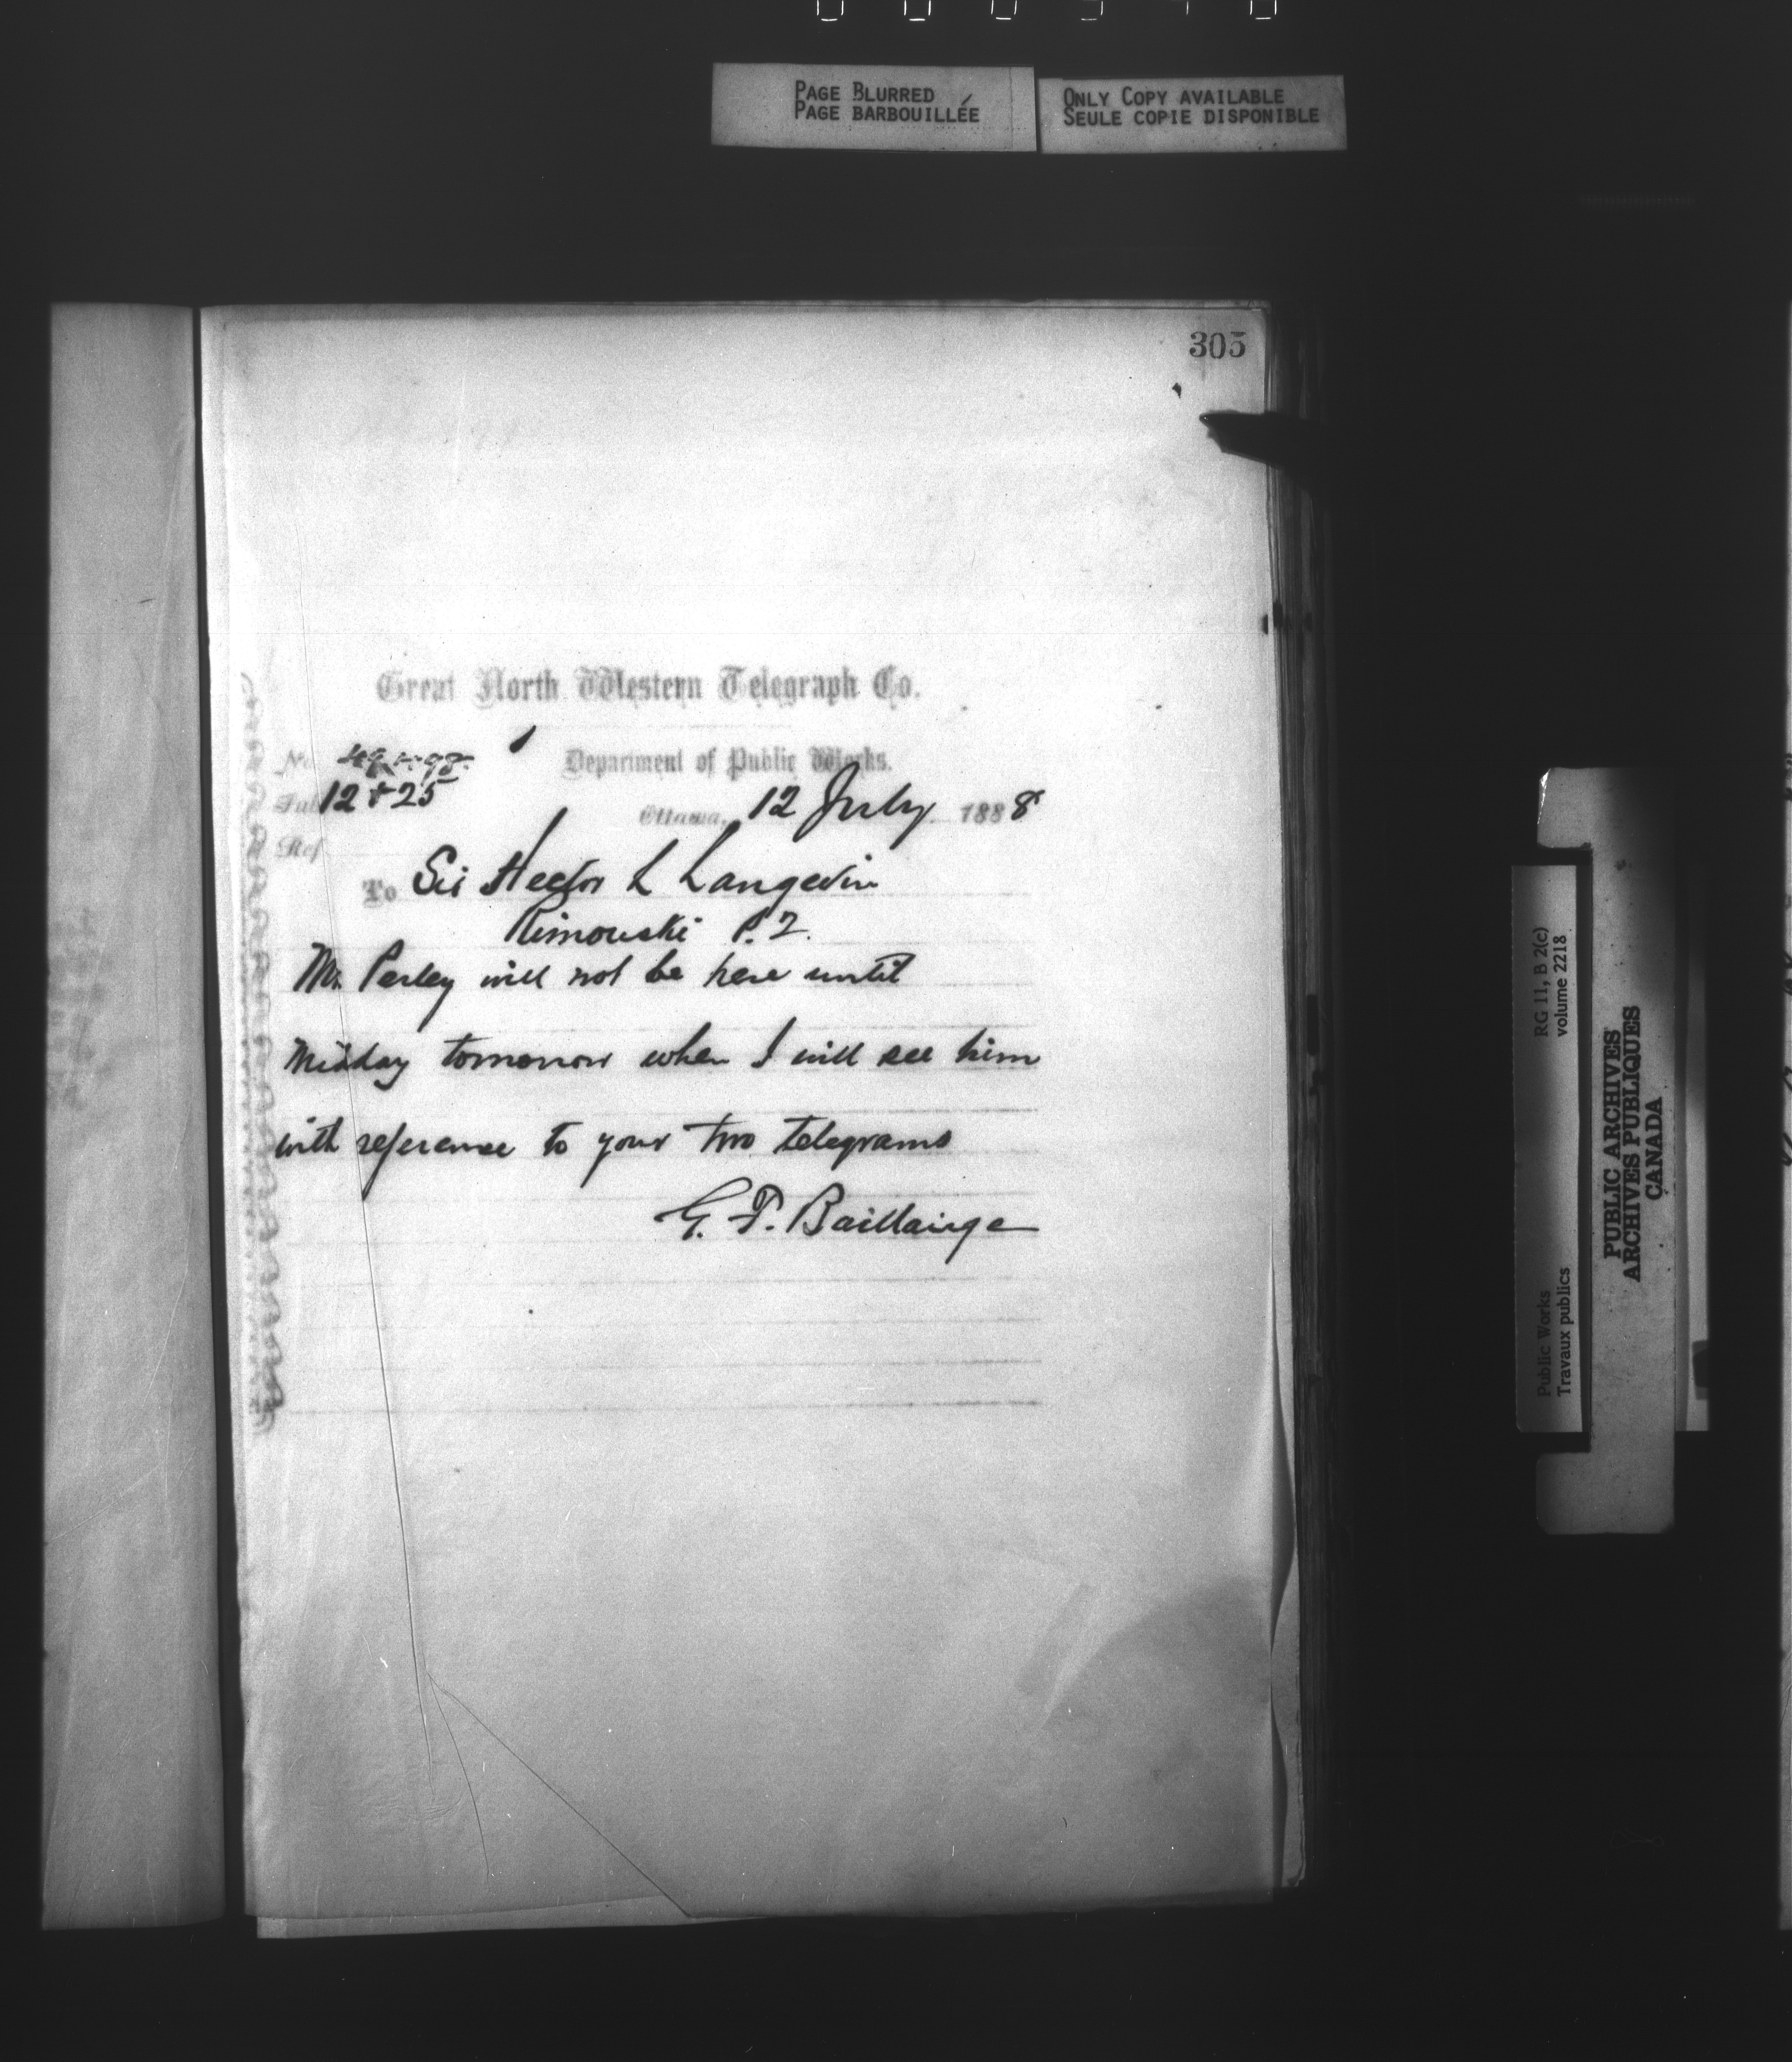 PAGE BLURRED
PAGE BARBOUILLÉE
ONLY COPY AVAILABLE
SEULE COPIE DISPONIBLE
305
Great North Western Telegraph Co.
No.
Department of Public Works.
Sub 12 + 25
Ottawa, 12 July 1888
Ref
To Sir Hector L Langevin
Rimouski P.Q.
Mr. Perley will not be here until
Midday tomorrow when I will see him
with reference to your two telegrams
G. F. Baillairge
RG 11, B 2(c)
volume 2218
Public Works
Travaux publics
PUBLIC ARCHIVES
ARCHIVES PUBLIQUES
CANADA